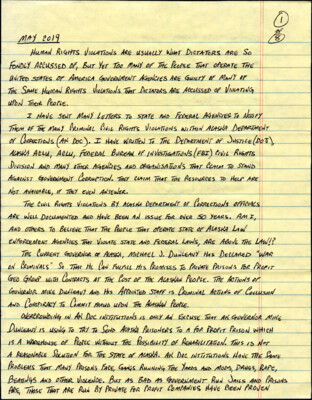 1
of
8
MAY 2019
HUMAN RIGHTS VIOLATIONS ARE USUALLY WHAT DICTATERS ARE SO
FONDLY ACCUSSED OF, BUT YET TOO MANY OF THE PEOPLE THAT OPERATE THE
UNITED STATES OF AMERICA GOVERNMENT AGENCIES ARE GUILTY OF MANY OF
THE SAME HUMAN RIGHTS VIOLATIONS THAT DICTATORS ARE ACCUSSED OF VIOLATING
UPON THEIR PEOPLE.
I HAVE SENT MANY LETTERS TO STATE AND FEDERAL AGENCIES TO NOTIFY
THEM OF THE MANY CRIMINAL CIVIL RIGHTS VIOLATIONS WITHIN ALASKA DEPARTMENT
OF CORRECTIONS (AK DOC). I HAVE WRITTEN TO THE DEPARTMENT OF JUSTICE (DOJ),
ALASKA ACLU, ACLU, FEDERAL BUREAU OF INVESTIGATIONS (FBI) CIVIL RIGHTS
DIVISION AND MANY OTHER AGENCIES AND ORGANIZATIONS THAT CLAIM TO STAND
AGAINST GOVERNMENT CORRUPTION. THEY CLAIM THAT THE RESOURCES TO HELP ARE
NOT AVAILABLE, IF THEY EVEN ANSWER.
THE CIVIL RIGHTS VIOLATIONS BY ALASKA DEPARTMENT OF CORRECTIONS OFFICIALS
ARE WELL DOCUMENTED AND HAVE BEEN AN ISSUE FOR OVER 30 YEARS. AM I,
AND OTHERS TO BELIEVE THAT THE PEOPLE THAT OPERATE STATE OF ALASKA LAW
ENFORCEMENT AGENCIES THAT VIOLATE STATE AND FEDERAL LAWS, ARE ABOVE THE LAW!?
THE CURRENT GOVERNOR OF ALASKA, MICHAEL J. DUNLEAVY HAS DECLARED "WAR
ON CRIMINALS" SO THAT HE CAN FULFILL HIS PROMISES TO PRIVATE PRISONS FOR PROFIT
GEO GROUP WITH CONTRACTS AT THE COST OF THE ALASKAN PEOPLE. THE ACTIONS OF
GOVERNOR MIKE DUNLEAVY AND HIS APPOINTED STAFF IS CRIMINAL ACTIONS OF COLLUSION
AND CONSPIRACY TO COMMIT FRAUD UPON THE ALASKAN PEOPLE.
OVERCROWDING IN AK DOC INSTITUTIONS IS ONLY AN EXCUSE THAT AK GOVERNOR MIKE
DUNLEAVY IS USING TO TRY TO SEND ALASKA PRISONERS TO A FOR PROFIT PRISON WHICH
IS A WAREHOUSE OF PEOPLE WITHOUT THE POSSIBILITY OF REHABILITATION. THIS IS NOT
A REASONABLE SOLUTION FOR THE STATE OF ALASKA. AK DOC INSTITUTIONS HAVE THE SAME
PROBLEMS THAT MANY PRISONS FACE, GANGS RUNNING THE YARDS AND MODS, DRUGS, RAPE,
BEATINGS AND OTHER VIOLENCE. BUT AS BAD AS GOVERNMENT RUN JAILS AND PRISONS
ARE, THOSE THAT ARE RUN BY PRIVATE FOR PROFIT COMPANIES HAVE BEEN PROVEN